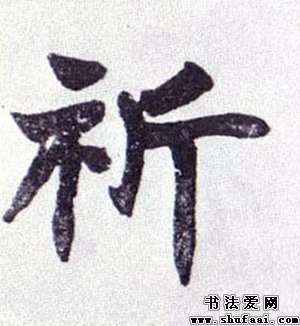 祈
书法爱网
www.shufaai.com